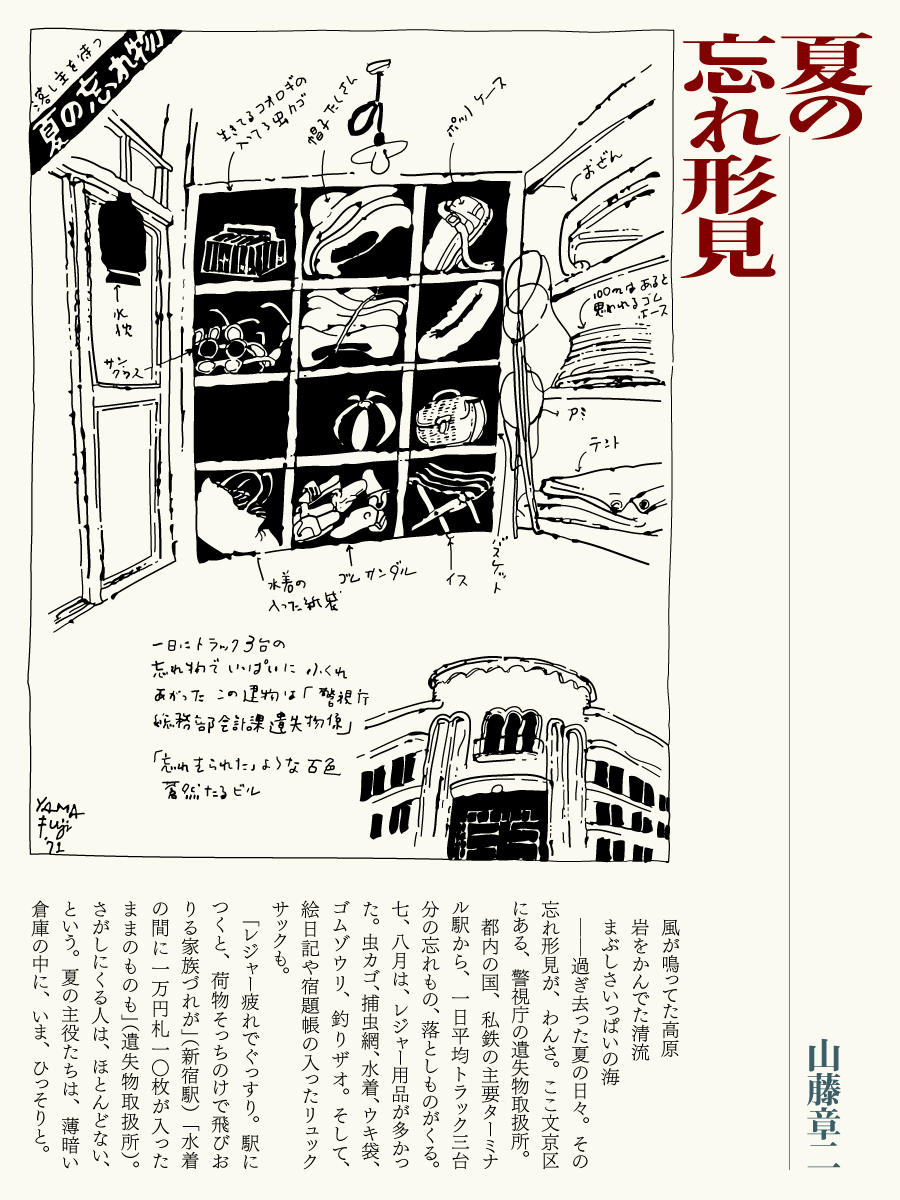 夏の
忘れ形見
山藤章二
落し主を待つ
夏の忘れ物
生きてるコオロギの
入ってる虫カゴ
帽子たくさん
ポットケース
おぜん
100mはあると
思われるゴム
ホース
水枕
サン
グラス
アミ
テント
水着の
入った紙袋
ゴムサンダル
イス
バスケット
一日にトラック3台の
忘れ物でいっぱいにふくれ
あがったこの建物は「警視庁
総務部会計課遺失物係」
「忘れ去られた」ような古色
蒼然たるビル
YAMA
fuji
'71
風が鳴ってた高原
岩をかんでた清流
まぶしさいっぱいの海
――過ぎ去った夏の日々。その
忘れ形見が、わんさ。ここ文京区
にある、警視庁の遺失物取扱所。
都内の国、私鉄の主要ターミナ
ル駅から、一日平均トラック三台
分の忘れもの、落としものがくる。
七、八月は、レジャー用品が多かっ
た。虫カゴ、捕虫網、水着、ウキ袋、
ゴムゾウリ、釣りザオ。そして、
絵日記や宿題帳の入ったリュック
サックも。
「レジャー疲れでぐっすり。駅に
つくと、荷物そっちのけで飛びお
りる家族づれが」(新宿駅)「水着
の間に一万円札一〇枚が入った
ままのものも」(遺失物取扱所)。
さがしにくる人は、ほとんどない、
という。夏の主役たちは、薄暗い
倉庫の中に、いま、ひっそりと。